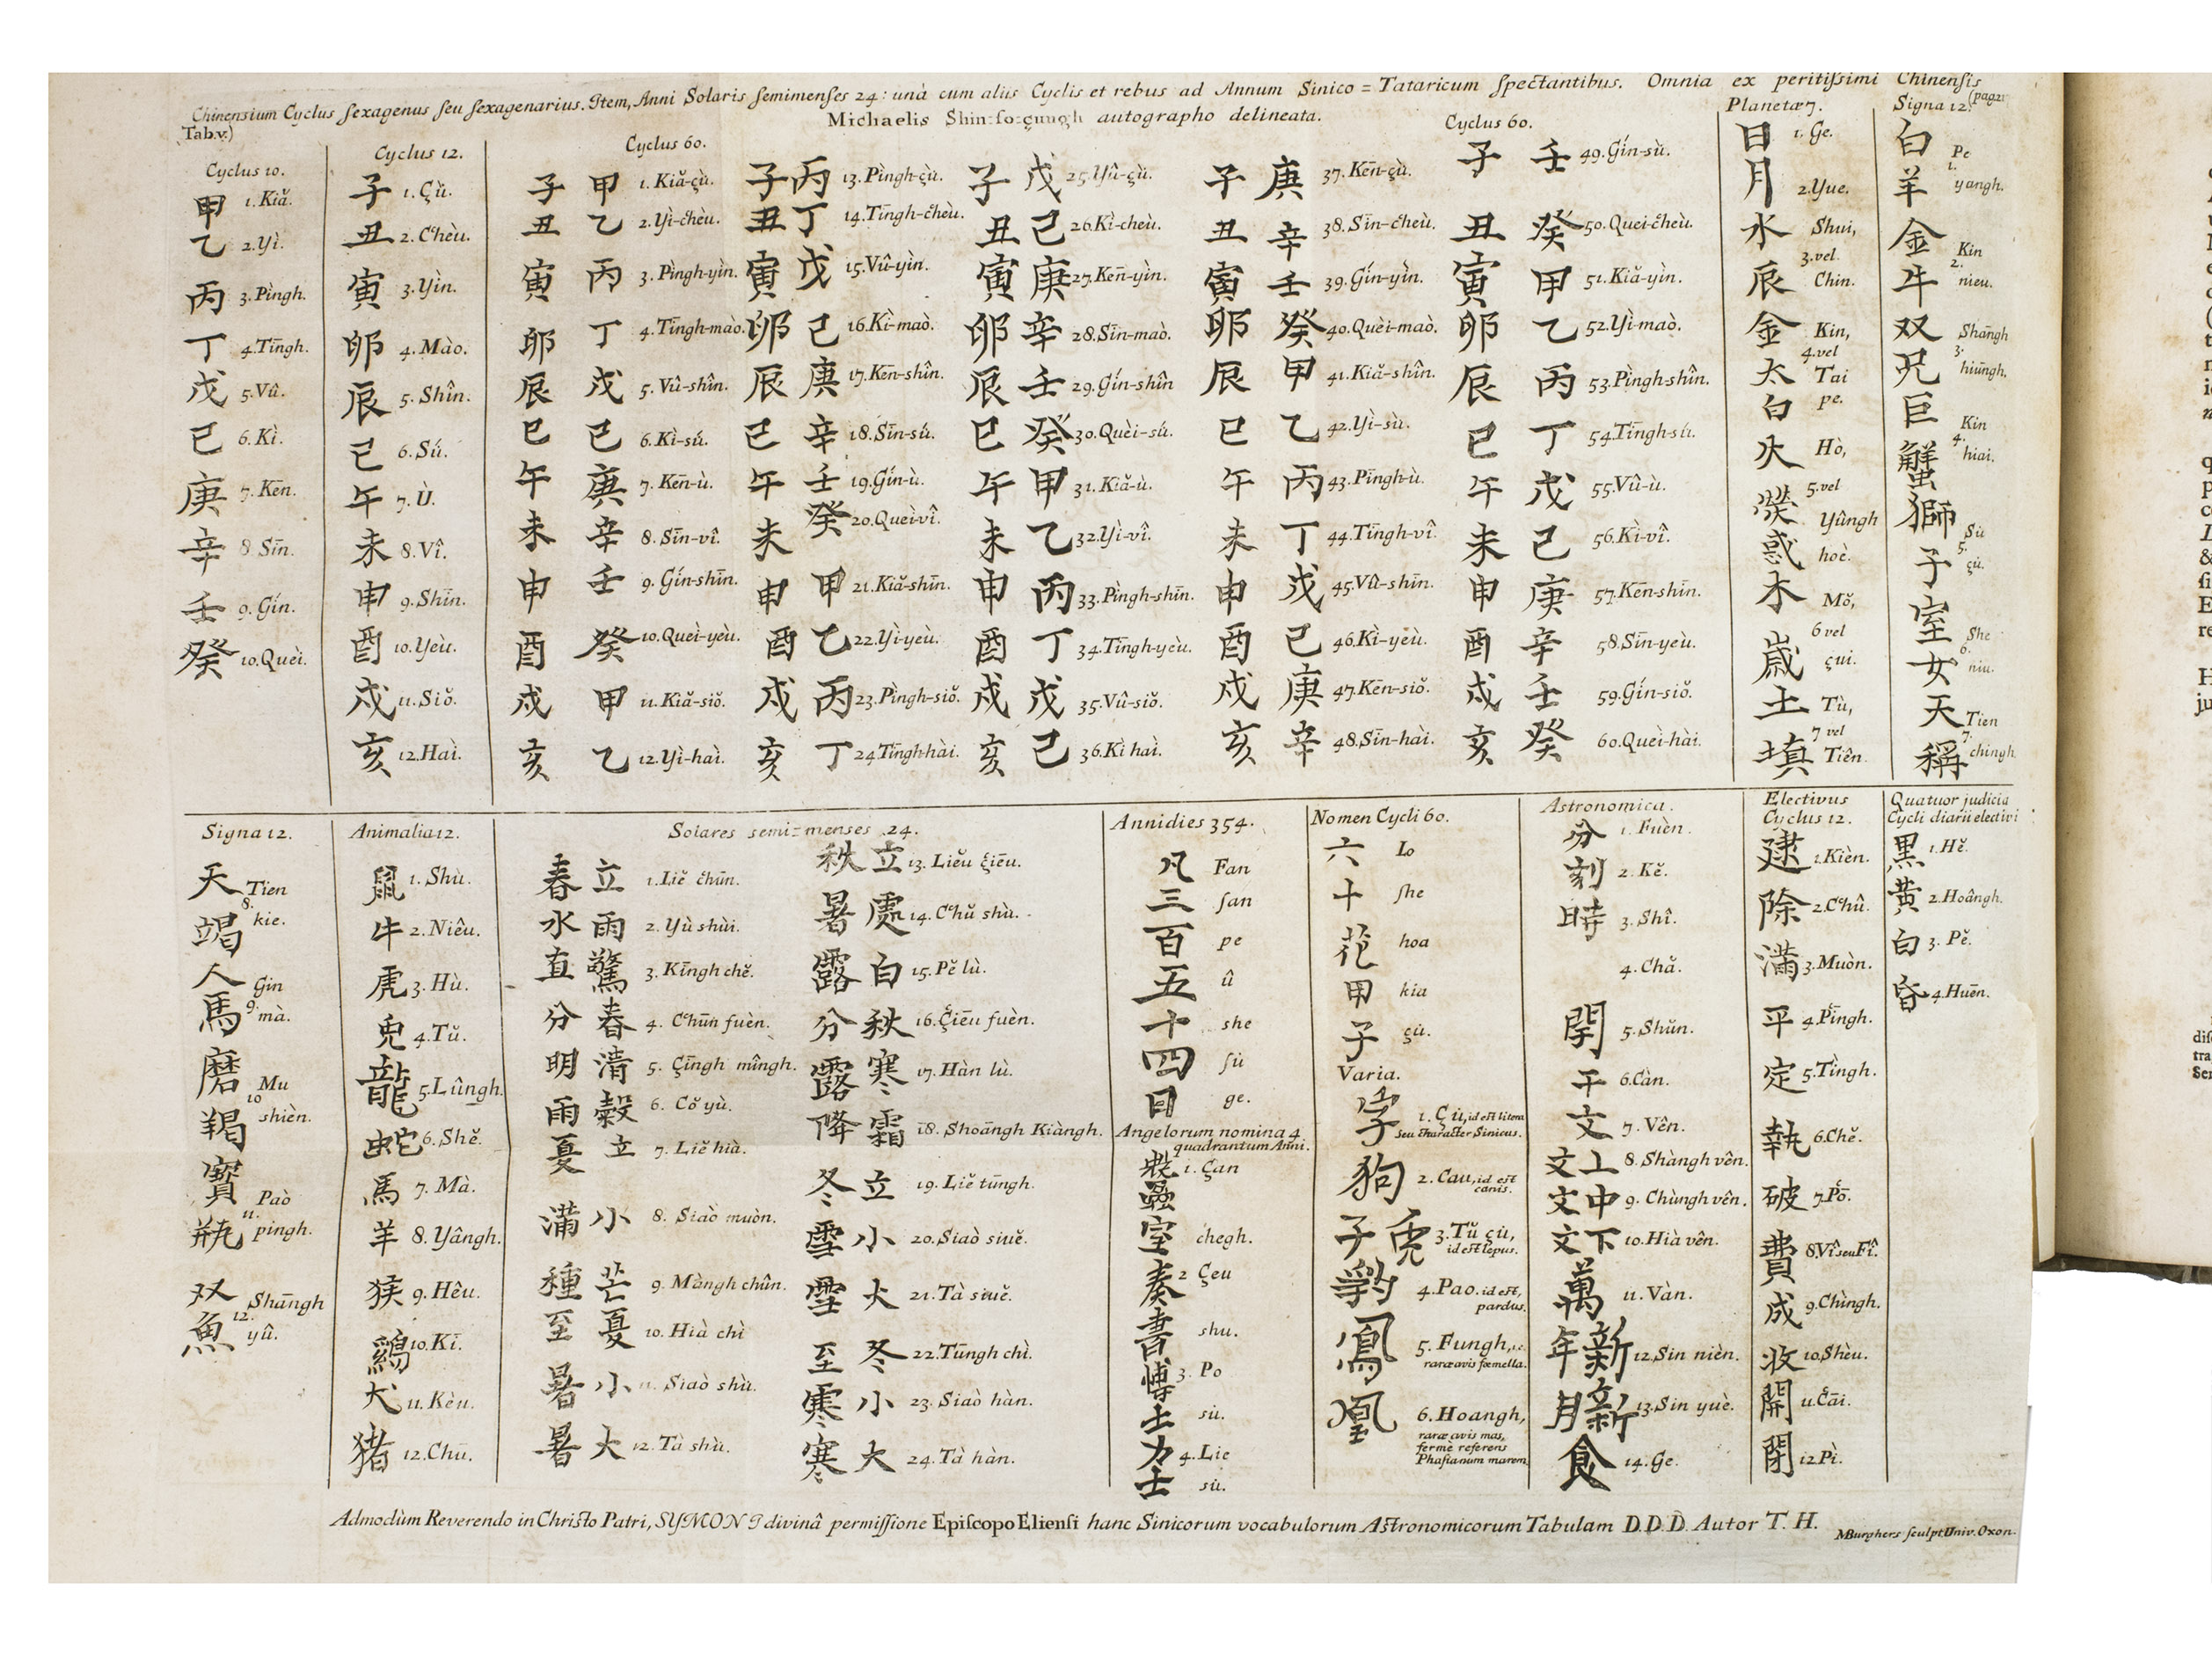 Chinensium Cyclus ſexagenus ſeu ſexagenarius. Item, Anni Solaris ſemimenſes 24: unà cum aliis Cyclis et rebus ad Annum Sinico = Tataricum ſpectantibus. Omnia ex peritiſsimi Chinenſis
Michaelis Shin-fo-çungh autographo delineata.
(pag21
Tab.v.)
Cyclus 10.
甲 1.Kiă.
乙 2.Yì.
丙 3.Pìngh.
丁 4.Tīngh.
戊 5.Vû.
己 6.Kì.
庚 7.Kēn.
辛 8 Sīn.
壬 9.Gín.
癸 10.Quèi.
Cyclus 12.
子 1.Çù.
丑 2.Cheù.
寅 3.Yìn.
卯 4.Mào.
辰 5.Shîn.
巳 6.Sú.
午 7.Ù.
未 8.Vî.
申 9.Shīn.
酉 10.Yeù.
戌 11.Siŏ.
亥 12.Haì.
Cyclus 60.
子 甲 1.Kiă-çù.
丑 乙 2.Yì-cheù.
寅 丙 3.Pìngh-yìn.
卯 丁 4.Tīngh-mào.
辰 戊 5.Vû-shîn.
巳 己 6.Kì-sú.
午 庚 7.Kēn-ù.
未 辛 8.Sīn-vî.
申 壬 9.Gín-shīn.
酉 癸 10.Queì-yeù.
戌 甲 11.Kiă-siŏ.
亥 乙 12.Yì-haì.
子 丙 13.Pìngh-çù.
丑 丁 14.Tīngh-cheù.
寅 戊 15.Vû-yìn.
卯 己 16.Kì-maò.
辰 庚 17.Kēn-shîn.
巳 辛 18.Sīn-sú.
午 壬 19.Gín-ù.
未 癸 20.Queì-vî.
申 甲 21.Kiă-shīn.
酉 乙 22.Yì-yeù.
戌 丙 23.Pìngh-siŏ.
亥 丁 24.Tīngh-hài.
子 戊 25.Yû-çù.
丑 己 26.Kì-cheù.
寅 庚 27.Kēn-yìn.
卯 辛 28.Sīn-maò.
辰 壬 29.Gín-shîn
巳 癸 30.Quèi-sú.
午 甲 31.Kiă-ù.
未 乙 32.Yì-vî.
申 丙 33.Pìngh-shīn.
酉 丁 34.Tīngh-yeù.
戌 戊 35.Vû-siŏ.
亥 己 36.Kì haì.
子 庚 37.Kēn-çù.
丑 辛 38.Sīn-cheù.
寅 壬 39.Gín-yìn.
卯 癸 40.Quèi-maò.
辰 甲 41.Kiă-shîn.
巳 乙 42.Yì-sù.
午 丙 43.Pìngh-ù.
未 丁 44.Tīngh-vî.
申 戊 45.Vû-shīn.
酉 己 46.Kì-yeù.
戌 庚 47.Kēn-siŏ.
亥 辛 48.Sīn-hài.
Cyclus 60.
子 壬 49.Gín-sù.
丑 癸 50.Quei-cheù.
寅 甲 51.Kiă-yìn.
卯 乙 52.Yì-maò.
辰 丙 53.Pìngh-shîn.
巳 丁 54.Tīngh-sú.
午 戊 55.Vû-ù.
未 己 56.Kì-vî.
申 庚 57.Kēn-shīn.
酉 辛 58.Sīn-yeù.
戌 壬 59.Gín-siŏ.
亥 癸 60.Queì-hài.
Planetæ 7.
日 1. Ge.
月 2.Yue.
水 Shui,
3.vel
辰 Chin.
金 Kin,
4.vel
太 Tai
白 pe.
火 Hò,
5.vel
熒 Yûngh
惑 hoè.
木 Mŏ,
6 vel
歲 çui.
土 Tù,
7 vel
填 Tiên.
Signa 12.
白 Pe
1.
羊 yangh.
金 Kin
2.
牛 nieu.
双 Shāngh
3.
兄 hiūngh.
巨 Kin
4.
蟹 hiai.
獅 Su
5.
子 çù.
室 She
6.
女 niu.
天 Tien
7.
稱 chingh.
Signa 12.
天 Tien
8.
蝎 kie.
人 Gin
9.
馬 mà.
磨 Mu
10
羯 shièn.
寳 Paò
11.
瓶 pingh.
双 Shāngh
12.
魚 yû.
Animalia 12.
鼠 1.Shù.
牛 2.Niêu.
虎 3.Hù.
兎 4.Tŭ.
龍 5.Lûngh.
蛇 6.Shĕ.
馬 7.Mà.
羊 8.Yângh.
猴 9.Hêu.
鷄 10.Kī.
犬 11.Kèu.
猪 12.Chū.
Solares semi-menses 24.
春 立 1.Liĕ chūn.
水 雨 2.Yù shùi.
直 驚 3.Kīngh chĕ.
分 春 4.Chūn fuèn.
明 清 5.Çīngh mîngh.
雨 榖 6. Cŏ yù.
夏 立 7. Liĕ hià.
滿 小 8. Siaò muòn.
種 芒 9. Màngh chûn.
至 夏 10. Hià chì
暑 小 11. Siaò shù.
暑 大 12. Tà shù.
秋 立 13. Liĕu çiēu.
暑 處 14. Chŭ shù.
露 白 15. Pĕ lù.
分 秋 16. Çiēu fuèn.
露 寒 17. Hàn lù.
降 霜 18. Shoāngh Kiàngh.
冬 立 19. Liĕ tūngh.
雪 小 20. Siaò siuĕ.
雪 大 21. Tà siuĕ.
至 冬 22. Tūngh chì.
寒 小 23. Siaò hàn.
寒 大 24. Tà hàn.
Anni dies 354.
凡 Fan
三 ſan
百 pe
五 û
十 she
四 ſù
日 ge.
Angelorum nomina 4
quadrantum Anni.
1. Çan
室 chegh.
奏 2 Çeu
書 shu.
博 3. Po
士 sù.
力 4. Lie
士 sù.
Nomen Cycli 60.
六 Lo
十 ſhe
花 hoa
甲 kia
子 çù.
Varia.
字 1. Çù, id eſt litera
seu character Sinicus.
狗 2. Cau, id eſt
canis.
子 兎 3. Tŭ çù,
id eſt lepus.
豹 4. Pao. id eſt,
pardus.
鳳 5. Fungh,
raræ avis fœmella.
凰 6. Hoangh,
raræ avis mas,
fermè referens
Phaſianum marem.
Astronomica.
分 1. Fuèn.
刻 2. Kĕ.
時 3. Shî.
4. Chă.
5. Shŭn.
干 6.Càn.
文 7. Vên.
文上 8. Shàngh vên.
文中 9. Chùngh vên.
文下 10. Hià vên.
萬 11. Vàn.
年新 12.Sin nièn.
月新 13.Sin yuè.
食 14. Ge.
Electivus
Cyclus 12.
建 1.Kièn.
除 2.Chû.
滿 3.Muòn.
平 4.Pîngh.
定 5.Tìngh.
執 6.Chĕ.
破 7.Pō.
費 8.Vî seu Fî.
成 9.Chìngh.
收 10.Shèu.
開 11.Cāi.
閉 12 Pì.
Quatuor judicia
Cycli diarii electivi
黒 1. Hĕ.
黃 2. Hoângh.
白 3. Pĕ.
昏 4. Huēn.
Admodùm Reverendo in Chriſto Patri, SYMONI divinâ permiſſione Epiſcopo Elienſi hanc Sinicorum vocabulorum Aſtronomicorum Tabulam D.D.D. Autor T. H.
MBurghers ſculpt Univ. Oxon.